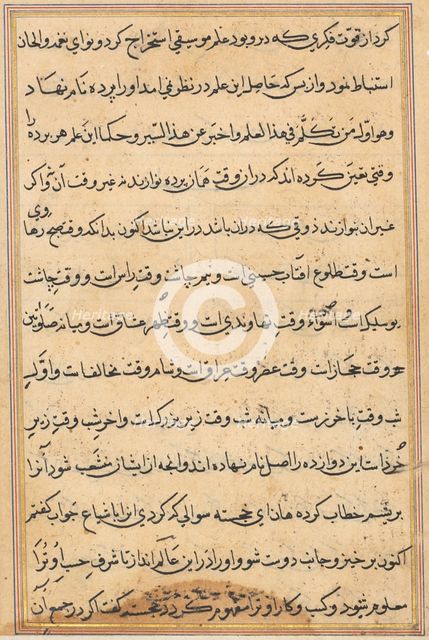 کرد از قوت فکری که درو بود علم موسیقی استخراج کرد و نوای نغمه و الحان
استنباط نمود و از بس که حاصل این علم در نظر او نمی آمد او را پرده نام نهاد
و هو اوّل من تکلّم فی هذا العلم و اخبر عن هذا السّر و حکما این علم هر پرده را
وقتی تعین کرده اند که در آن وقت همان پرده نوازند نه غیر وقت آن و اگر
غیر آن بنوازند ذوقی که در آن باشد در این نباشد اکنون بدانکه وقت صبح رهاوی
است وقت طلوع آفتاب حسینی است و نیم چاشت وقت راست است و وقت چاشت
بوسلیک است استواء وقت نهاوندی است و وقت ظهر عشاق است و میانه صلوتین
وقت حجاز است وقت عصر وقت عراق است و شام وقت مخالف است و اوّل
شب وقت باخرز است و میانه شب وقت زیر بزرگ است و آخر شب وقت زیر
خُرد است این دوازده را اصل نام نهاده اند و آنچه از ایشان منشعب شود آنرا
بریشم خطاب کرده هان ای خجسته سوالی که کردی آنرا باشباع جواب گفتم
اکنون برخیز و جانب دوست شو و او را در این عالم انداز تا شرف حسب او ترا
معلوم شود و کسب و کار او ترا مفهوم گردد خجسته گفت اگر در جمع آن
Heritage
Heritage
Heritage
Heritage
Heritage